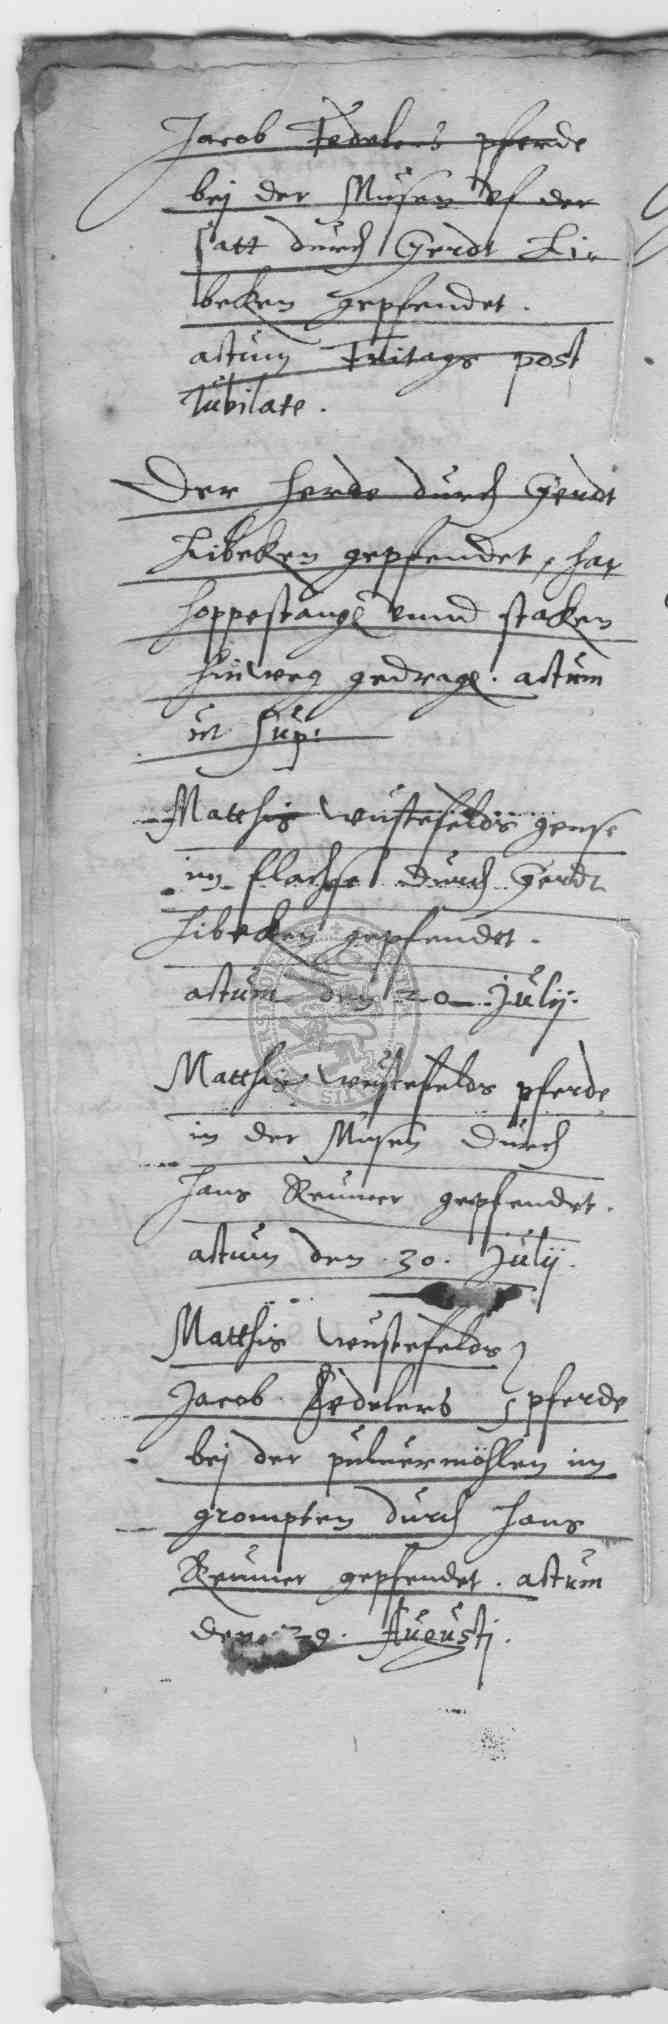 Jacob Fedelers pferde
bej der Müsen vf der
satt dürch Gerdt Li-
beken gepfendet.
actum Freitags post
Jubilate.
Der herde dürch Gerdt
Libeken gepfendet, hat
hoppestange vnnd staken
hinweg gedrage. actum
ut sup:
Matthis wüstefelds gense
im flachse dürch Gerdt
Libeken gepfendet.
actum den 20 Julij.
Matthis wüstefelds pferde
in der Müsen dürch
Hans Reumer gepfendet.
actum den 30. Julij.
Matthis wüstefelds
Jacob Fedelers pferde
bej der puluermöhlen im
grompten dürch Hans
Reumer gepfendet. actum
den 29. Augustj.